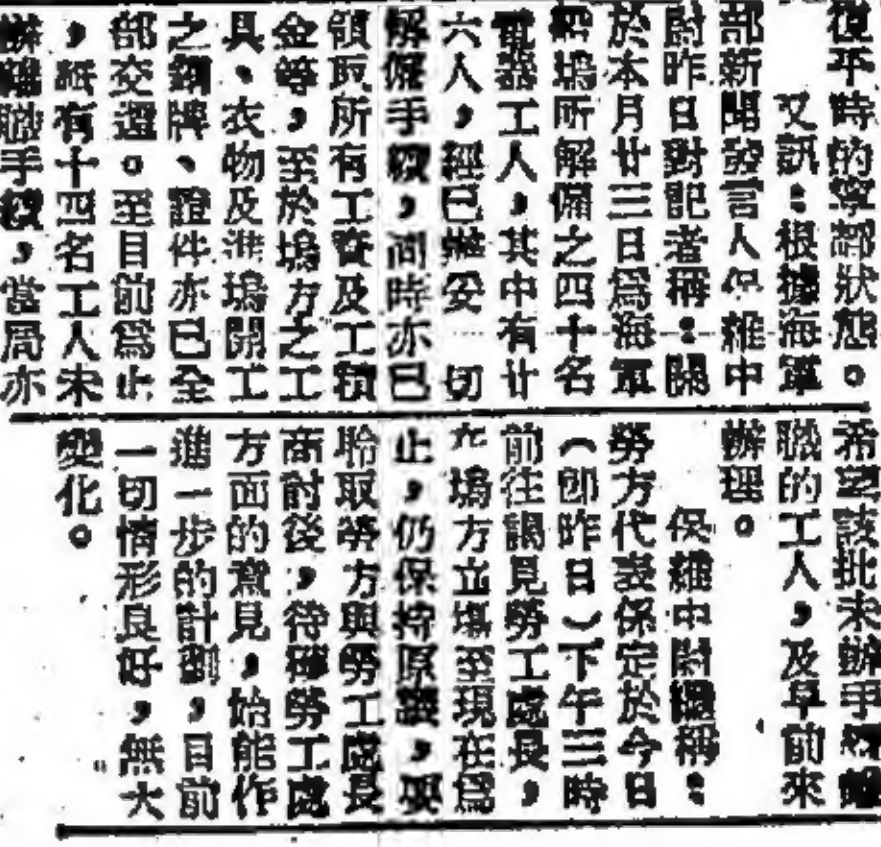 復平時的寧靜狀態。
又訊：根據海軍
部新聞發言人保維中
尉昨日對記者稱：關
於本月廿三日為海軍
船塢所解僱之四十名
電器工人，其中有廿
六人，經已辦妥一切
解僱手續，同時亦已
領取所有工資及工積
金等，至於塢方之工
具、衣物及准塢開工
之銅牌、證件亦已全
部交還。至目前為止
，祇有十四名工人未
辦離職手續，當局亦
希望該批未辦手續離
職的工人，及早前來
辦理。
保維中尉還稱：
勞方代表係定於今日
（即昨日）下午三時
前往謁見勞工處長，
塢方立場至現在為
止，仍保持原議，要
聆取勞方與勞工處長
商討後，待勞工處
方面的意見，始能作
進一步的計劃，目前
一切情形良好，無大
變化。